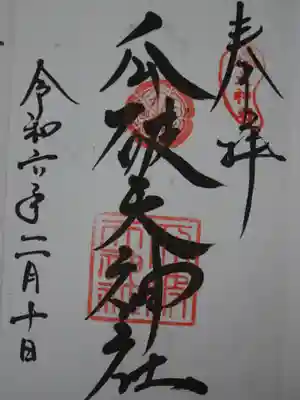 奉拝
瓜破天神社
令和六年二月十日